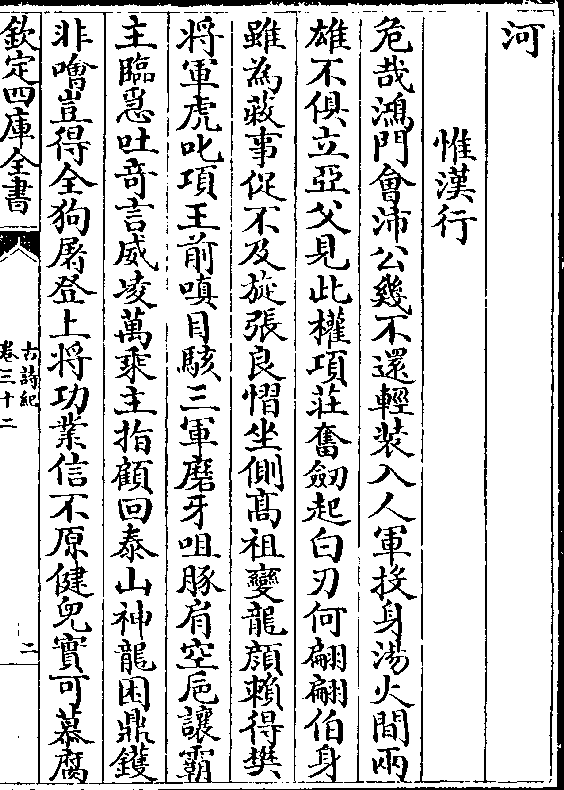 河
惟漢行
危哉鴻門會沛公幾不還輕裝入人軍投身湯火間兩
雄不俱立亞父見此權項莊奮劒起白刃何翩翩伯身
雖為蔽事促不及旋張良慴坐側髙祖變龍顔賴得樊
將軍虎叱項王前嗔目駭三軍磨牙咀豚肩空巵讓霸
主臨急吐奇言威凌萬乘主指顧回泰山神龍困鼎鑊
非噲豈得全狗屠登上將功業信不原健兒實可慕腐
欽定四庫全書
古詩紀
卷三十二
二